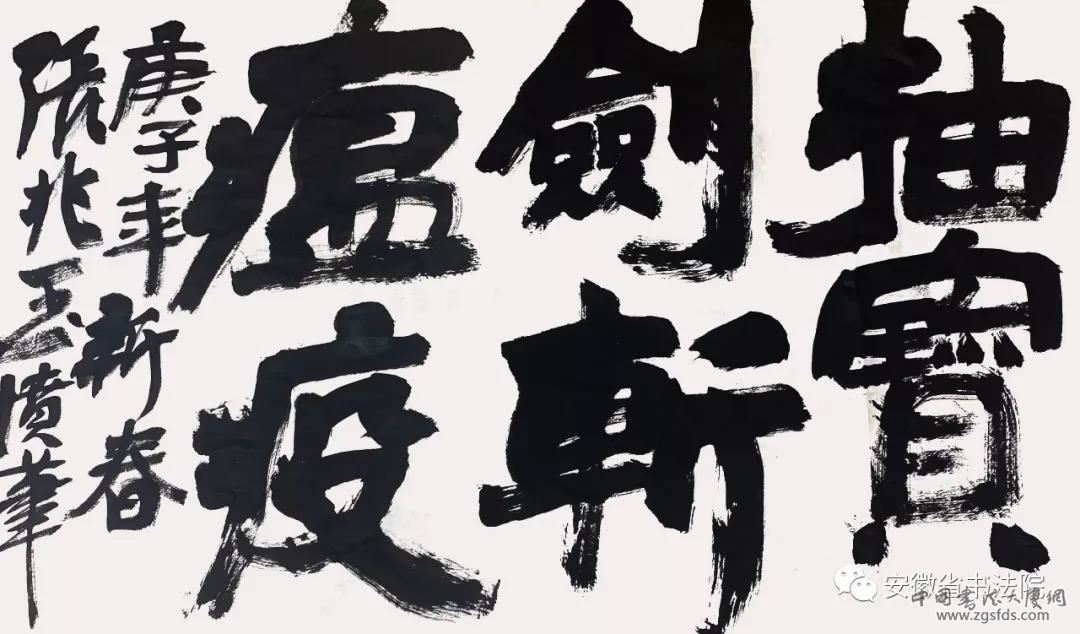 抽寶
劍斬
瘟疫
庚子年新春
張兆玉憤筆
安徽省书法院
中国书法大厦網
www.zgsfds.com